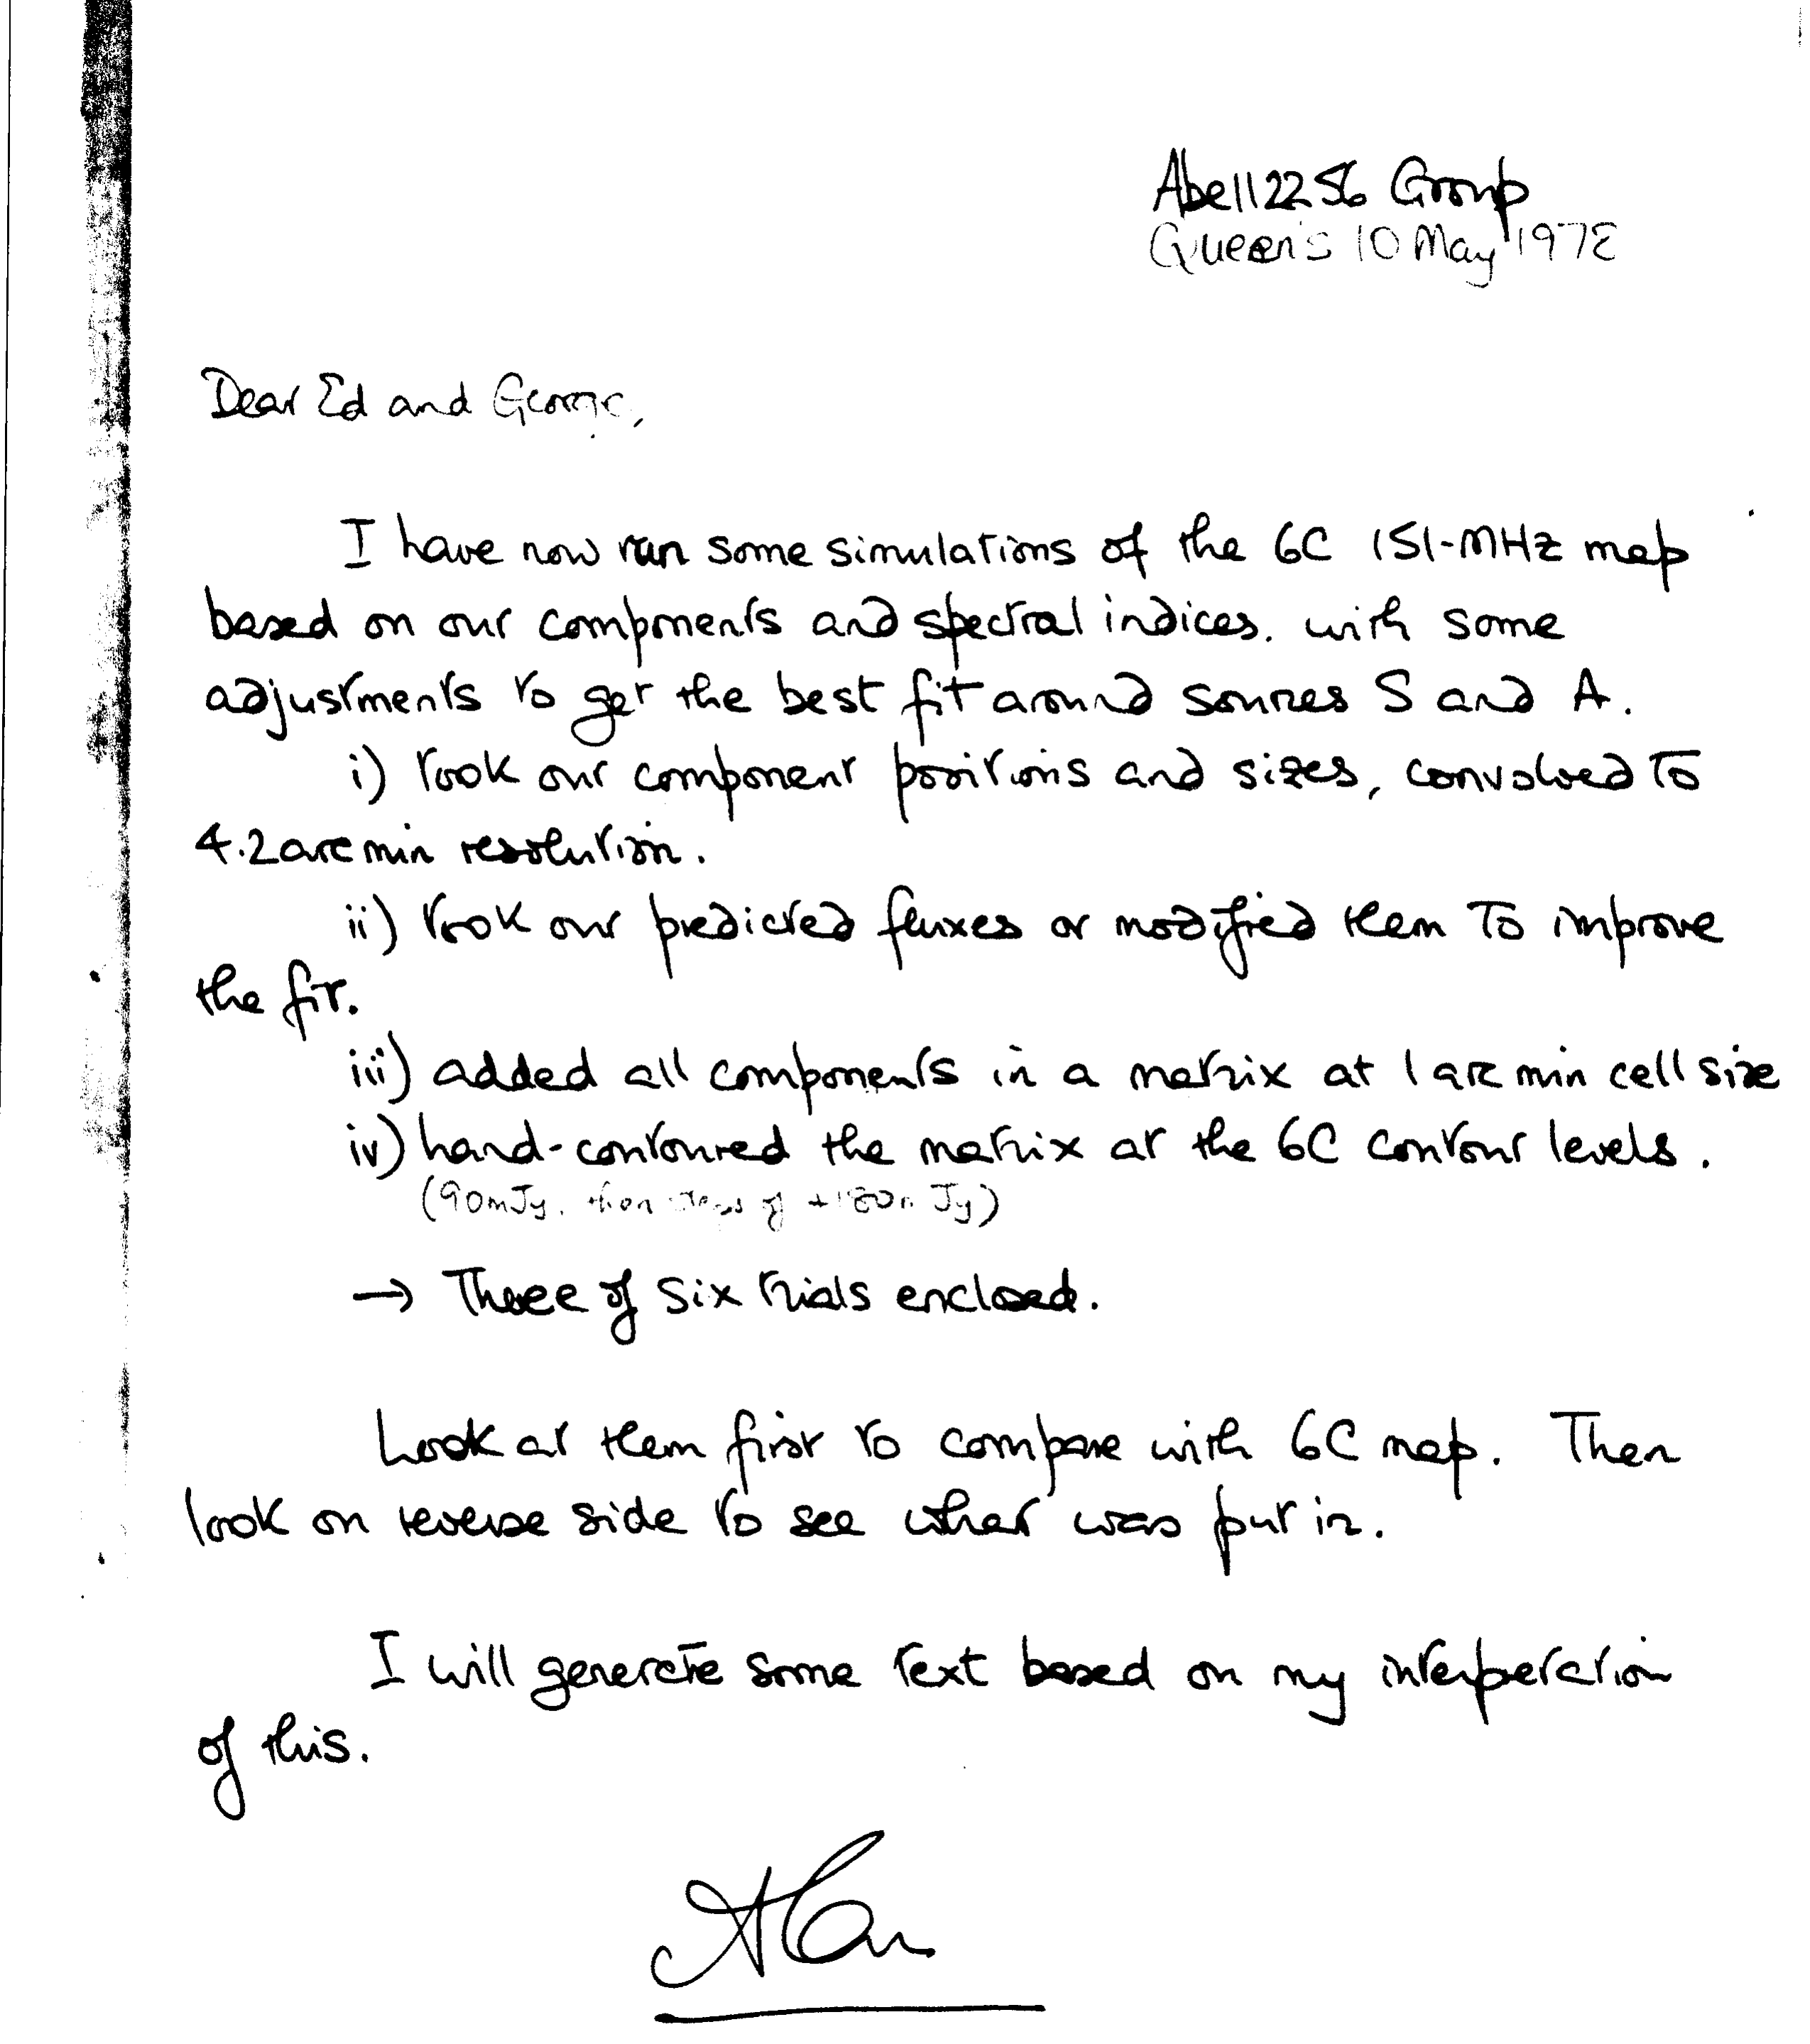 Abell 2256 Group
Queen's 10 May 1978
Dear Ed and George,
I have now run some simulations of the 6C 151-MHz map
based on our components and spectral indices. with some
adjustments to get the best fit around sources S and A.
i) took our component positions and sizes, convolved to
4.2 arc min resolution.
ii) took our predicted fluxes or modified them to improve
the fit.
iii) added all components in a matrix at 1 arc min cell size
iv) hand-contoured the matrix at the 6C contour levels.
(90mJy, then steps of +180mJy)
→ Three of six trials enclosed.
Look at them first to compare with 6C map. Then
look on reverse side to see what was put in.
I will generate some text based on my interperation
of this.
Alan